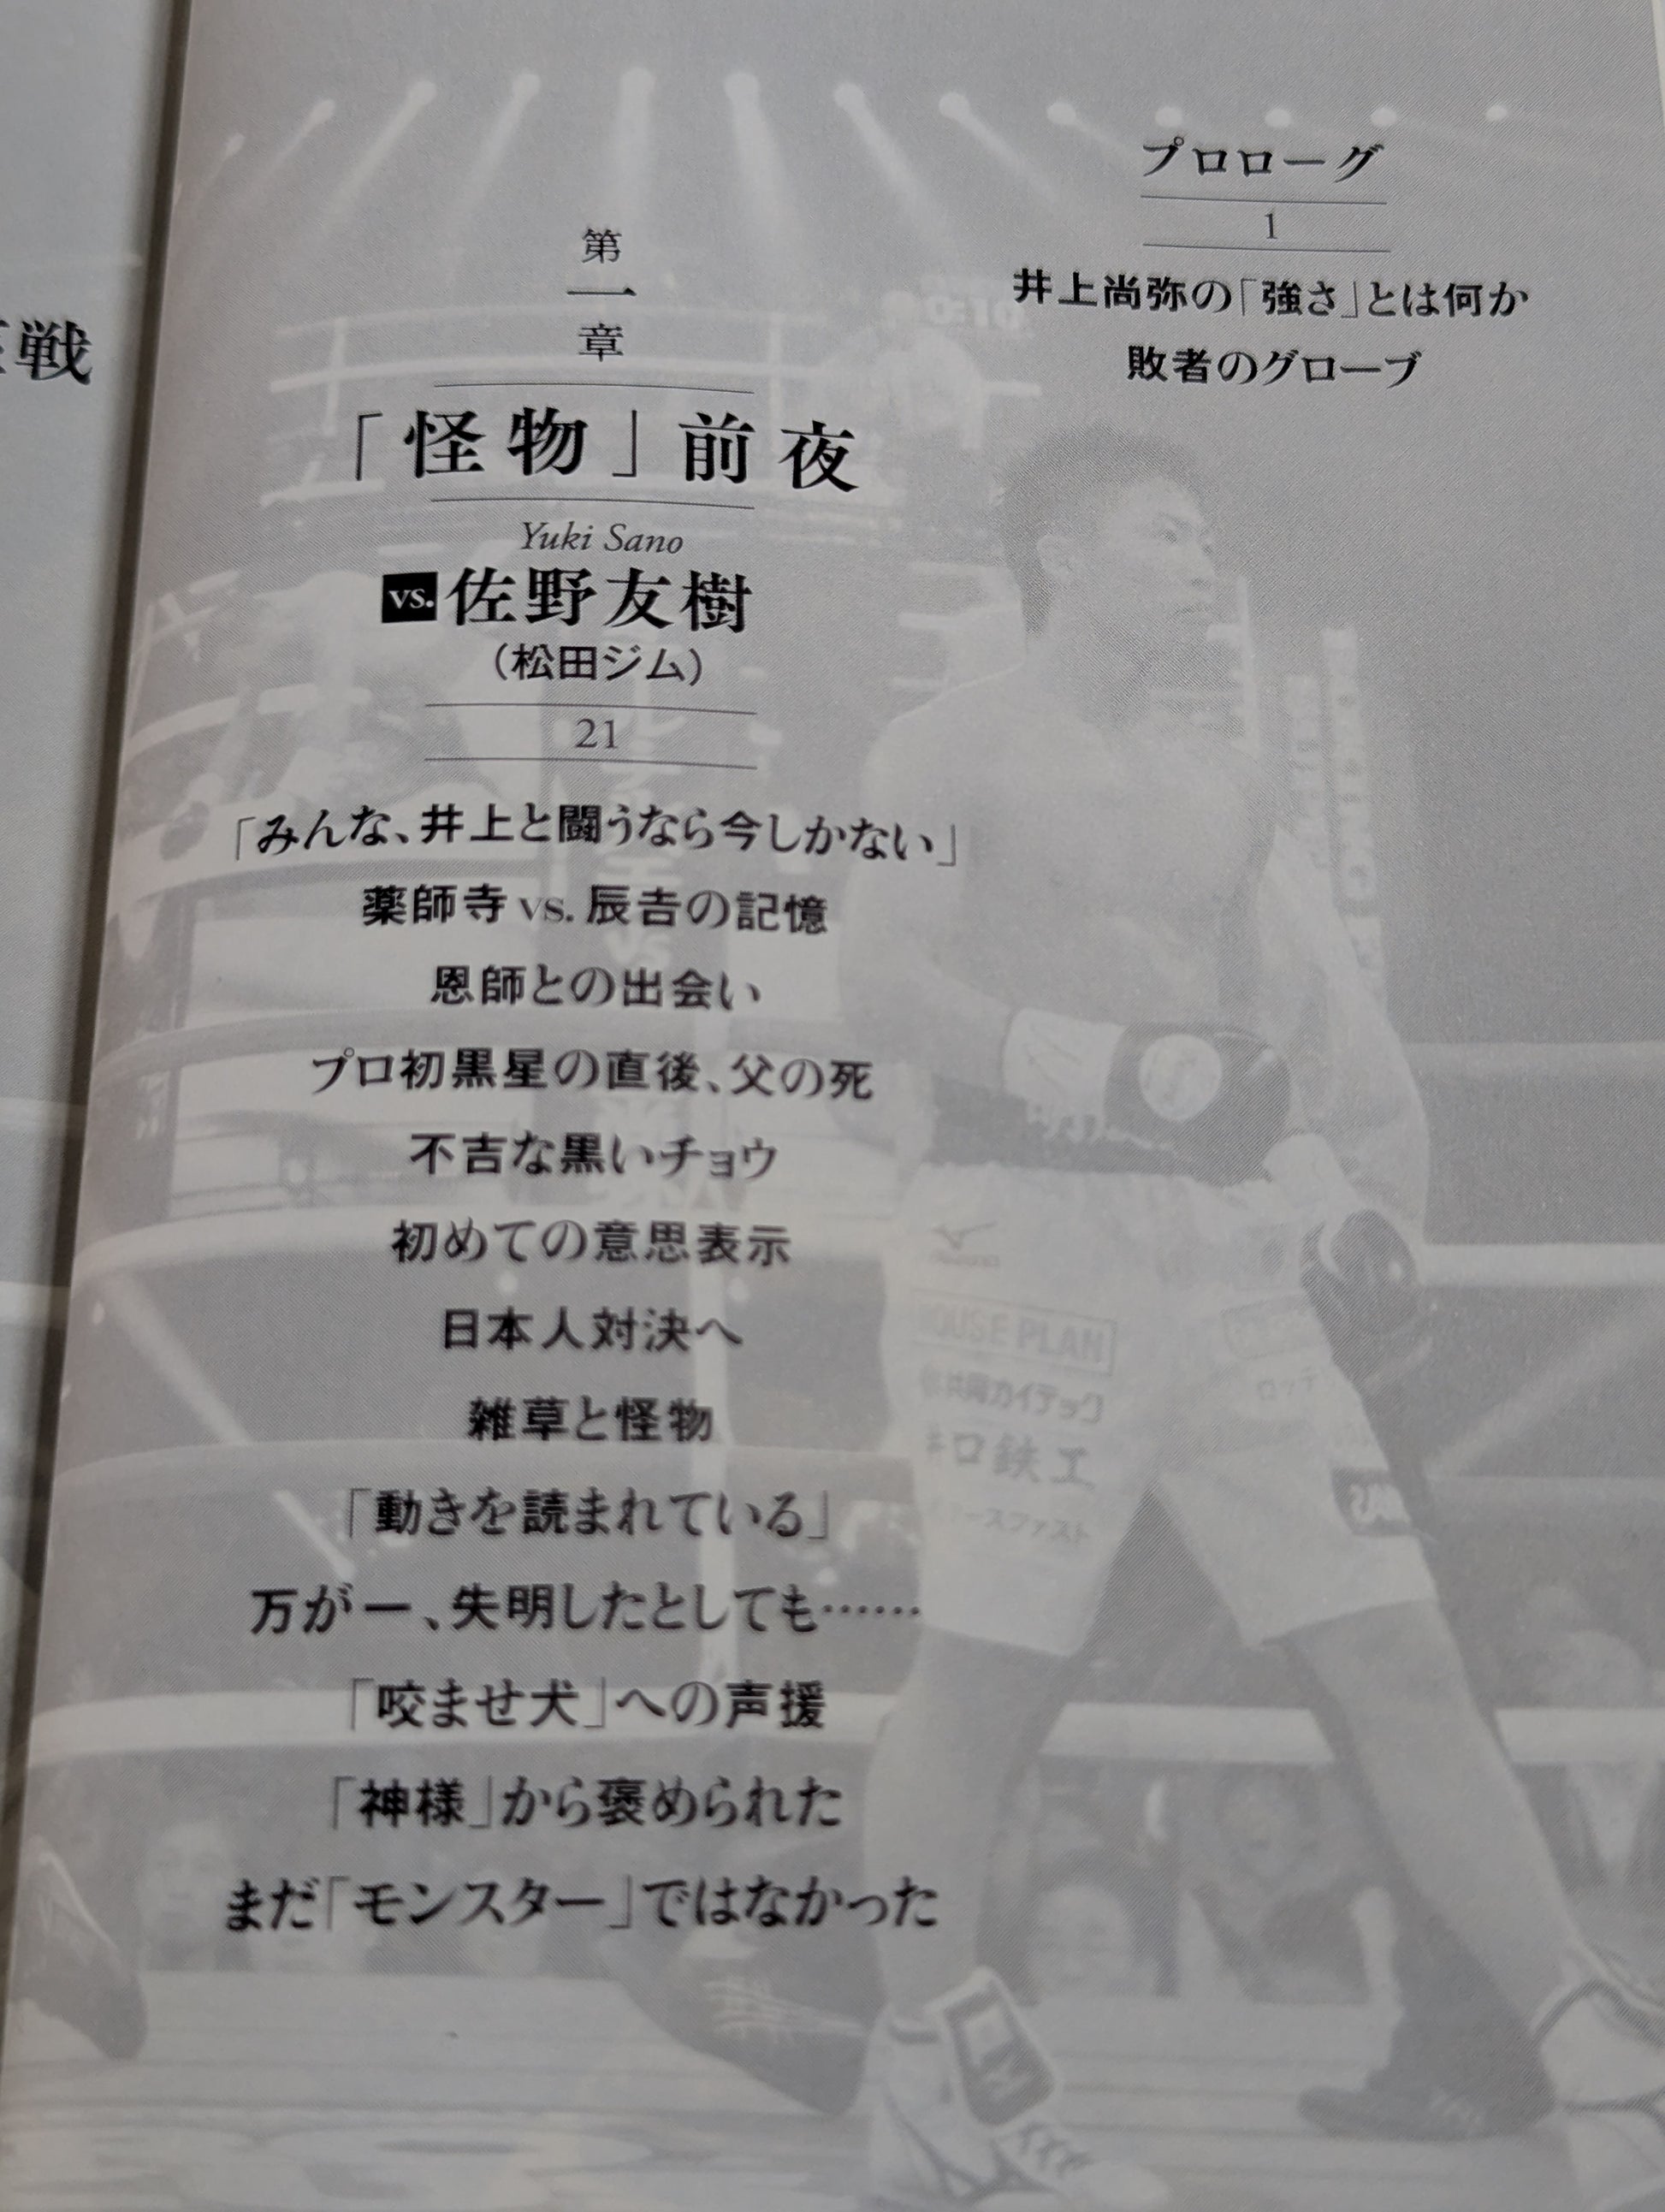 プロローグ
1
井上尚弥の「強さ」とは何か
敗者のグローブ
第
一
章
「怪物」前夜
Yuki Sano
vs.佐野友樹
（松田ジム）
21
「みんな、井上と闘うなら今しかない」
薬師寺 vs. 辰𠮷の記憶
恩師との出会い
プロ初黒星の直後、父の死
不吉な黒いチョウ
初めての意思表示
日本人対決へ
雑草と怪物
「動きを読まれている」
万が一、失明したとしても……
「咬ませ犬」への声援
「神様」から褒められた
まだ「モンスター」ではなかった
戦
OUSE PLAN
カイテック
口鉄工
スファスト
ロッテ